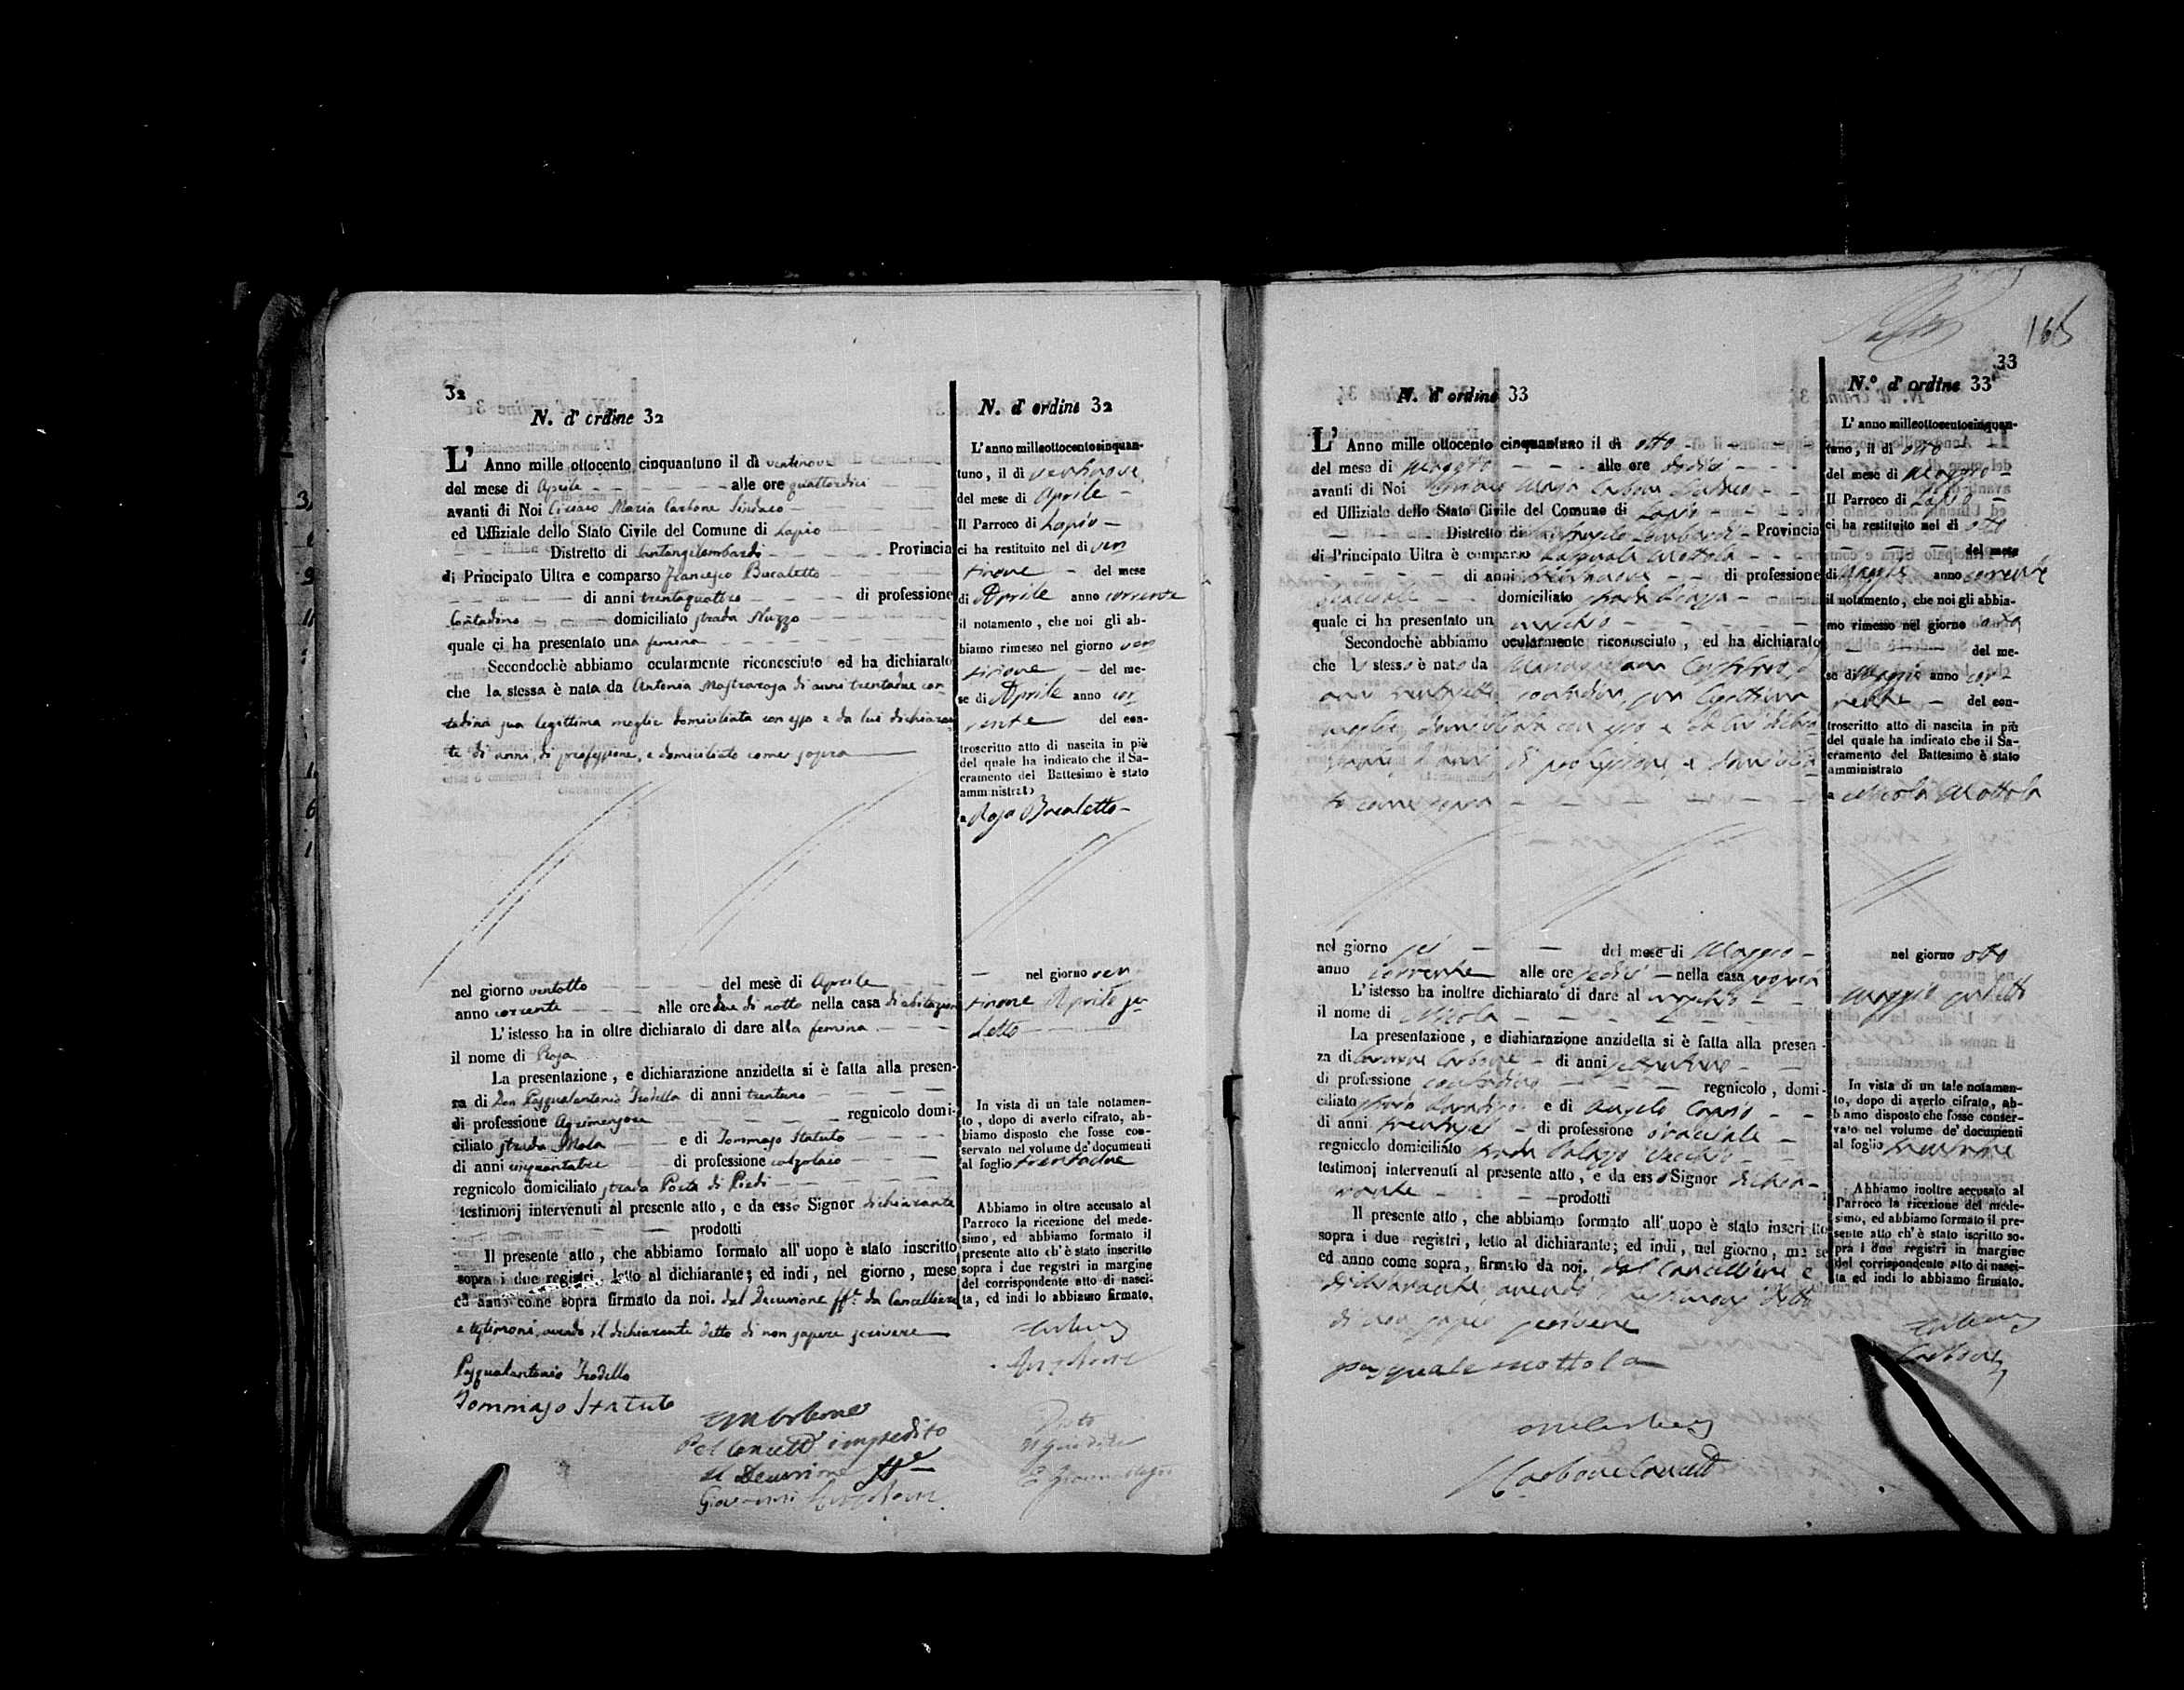 32
N. d' ordine 32
L' Anno mille ottocento cinquantuno il dì ventinove
del mese di Aprile alle ore quattordici
avanti di Noi Ciriaco Maria Carbone Sindaco
ed Uffiziale dello Stato Civile del Comune di Lapio
Distretto di Santangelombardi Provincia
di Principato Ultra e comparso Francesco Bucaletto
di anni trentaquattro di professione
Contadino domiciliato strada
quale ci ha presentato una femina
Secondochè abbiamo ocularmente riconosciuto ed ha dichiarato
che la stessa è nata da Antonia Mastrarosa di anni trentadue con-
tadina sua legittima moglie domiciliata con esso e da lui dichiaran-
te di anni, di professione, e domiciliato come sopra
nel giorno ventotto del mese di Aprile
anno corrente alle ore due di notte nella casa di abitazione
L'istesso ha in oltre dichiarato di dare alla femina
il nome di Rosa
La presentazione, e dichiarazione anzidetta si è fatta alla presen-
za di Don Pasqualantonio Trodella di anni trentuno
di professione Agrimensore regnicolo domi-
ciliato strada Mola e di Tommaso Statuto
di anni cinquantatre di professione calzolaio
regnicolo domiciliato strada Porta di Piedi
testimonj intervenuti al presente atto, e da esso Signor dichiarante
prodotti
Il presente atto, che abbiamo formato all' uopo è stato inscritto
sopra i due registri, letto al dichiarante; ed indi, nel giorno, mese
ed anno come sopra firmato da noi. dal Decurione ff.e da Cancelliere
e testimoni, avendo il dichiarante detto di non sapere scrivere
Pasqualantonio Trodella
Tommaso Statuto
Pel Cancell.e impedito
il Decurione ff.e
Giovanni
N. d' ordine 32
L' anno milleottocentocinquan-
tuno, il di ventinove
del mese di Aprile
Il Parroco di Lapio
ci ha restituito nel di ven
tinove del mese
di Aprile anno corrente
il notamento, che noi gli ab-
biamo rimesso nel giorno ven
tinove del me-
se di Aprile anno cor
rente del con-
troscritto atto di nascita in piè
del quale ha indicato che il Sa-
cramento del Battesimo è stato
amministrato
a Rosa Bucaletto
nel giorno ven
tinove Aprile su
detto
In vista di un tale notamen-
to, dopo di averlo cifrato, ab-
biamo disposto che fosse con-
servato nel volume de' documenti
al foglio trentadue
Abbiamo in oltre accusato al
Parroco la ricezione del mede-
simo, ed abbiamo formato il
presente atto ch'è stato inscritto
sopra i due registri in margine
del corrispondente atto di nasci-
ta, ed indi lo abbiamo firmato.
Visto
Il Giudice
165
33
N. d' ordine 33
L' Anno mille ottocento cinquantuno il dì otto
del mese di Maggio alle ore dodici
avanti di Noi Ciriaco Maria Carbone Sindaco
ed Uffiziale dello Stato Civile del Comune di Lapio
Distretto di Provincia
di Principato Ultra è comparso Pasquale Mottola
di anni di professione
domiciliato strada Piazza
quale ci ha presentato un maschio
Secondochè abbiamo ocularmente riconosciuto, ed ha dichiarato
che lo stesso è nato da
anni contadina sua legittima
moglie domiciliata con esso e da lui dichia-
rante, di anni di professione, e domicilia-
to come sopra
nel giorno sei del mese di Maggio
anno corrente alle ore sedici nella casa propria
L'istesso ha inoltre dichiarato di dare al maschio
il nome di Nicola
La presentazione, e dichiarazione anzidetta si è fatta alla presen-
za di Carbone di anni
di professione contadino regnicolo, domi-
ciliato strada e di Angelo
di anni trentasei di professione bracciale
regnicolo domiciliato strada Palazzo Vecchio
testimonj intervenuti al presente atto, e da esso Signor dichia-
rante prodotti
Il presente atto, che abbiamo formato all' uopo è stato inscritto
sopra i due registri, letto al dichiarante; ed indi, nel giorno, mese
ed anno come sopra, firmato da noi. dal Cancelliere e
dichiarante, avendo i testimoni detto
di non sapere scrivere
pasquale mottola
Carbone Cancell.e
N.° d' ordine 33
L' anno milleottocentocinquan-
tuno, il di otto
del mese di Maggio
Il Parroco di Lapio
ci ha restituito nel di otto
del mese
di Maggio anno corrente
il notamento, che noi gli abbia-
mo rimesso nel giorno otto
del me-
se di Maggio anno cor-
rente del con-
troscritto atto di nascita in piè
del quale ha indicato che il Sa-
cramento del Battesimo è stato
amministrato
a Nicola Mottola
nel giorno otto
Maggio sudetto
In vista di un tale notamen-
to, dopo di averlo cifrato, ab-
biamo disposto che fosse conser-
vato nel volume de' documenti
al foglio trentatre
Abbiamo inoltre accusato al
Parroco la ricezione del mede-
simo, ed abbiamo formato il pre-
sente atto ch' è stato iscritto so-
pra i due registri in margine
del corrispondente atto di nasci-
ta ed indi lo abbiamo firmato.
Carbone